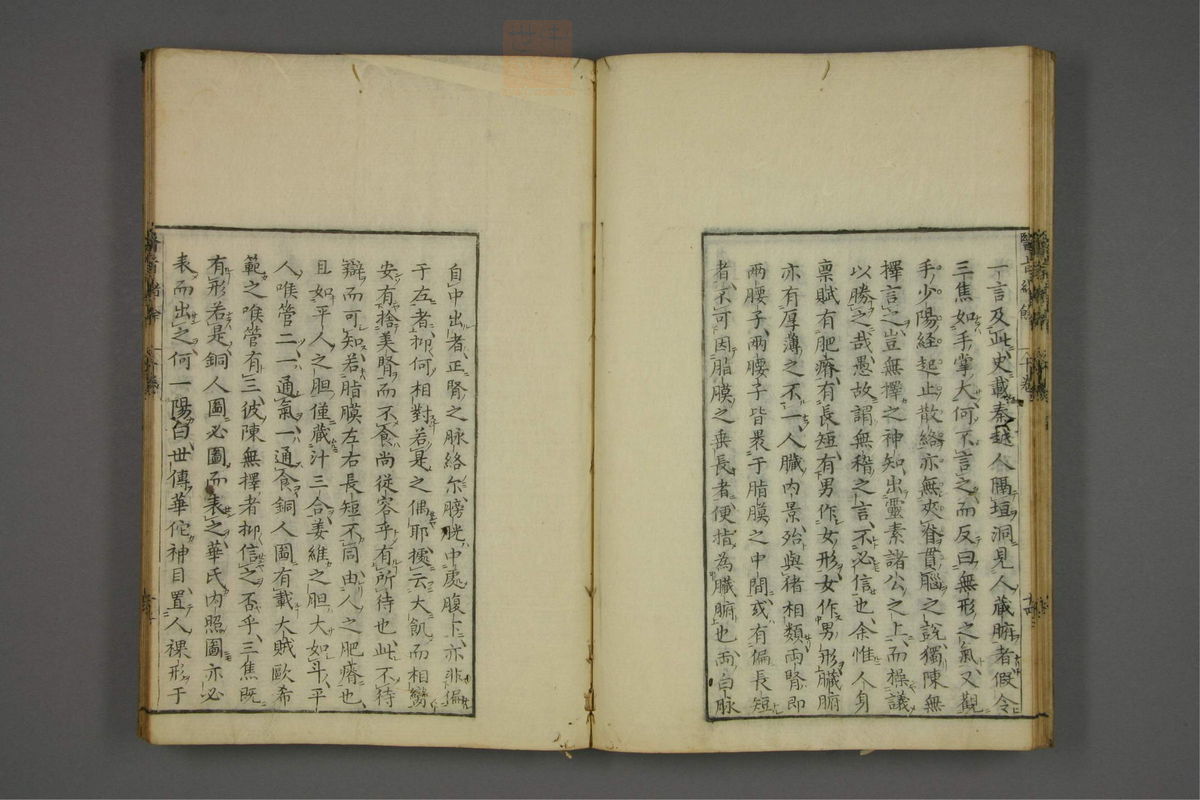 一言及此史載秦越人隔垣洞見人蔵腑者假令
三焦如手掌大何不言之而反曰無形之氣又觀
手少陽経起止散絡亦無夾脊貫腦之説獨陳無
擇言之豈無擇之神知出靈素諸公之上而操議
以勝之哉愚故謂無稽之言不必信也余惟人身
禀賦有肥瘠有長短有男作女形女作男形臓腑
亦有厚薄之不一人臓内景殆與猪相類両腎即
両腰子両腰子皆裹于脂膜之中間或有偏長短
者不可因脂膜之垂長者便指為臓腑也両白脉
自中出者正腎之脉絡尓膀胱中處腹下亦非偏
于左者抑何相對若是之偶耶據云大飢而相臠
安有捨美腎而不食尚従容乎有所待也此不待
辯而可知若脂膜左右長短不同由人之肥瘠也
且如平人之胆僅蔵汁三合姜維之胆大如斗平
人喉管二一通氣一通食銅人圖有載大賊歐希
範之喉管有三彼陳無擇者抑信之否乎三焦既
有形若是銅人圖必圖而表之華氏内照圖亦必
表而出之何一陽曰世傳華佗神目置人裸形于